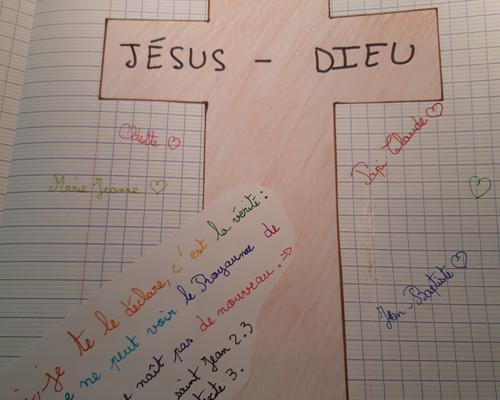 JÉSUS - DIEU
Odette
Papi Claude
Marie Jeanne
Jean-Baptiste
je te le déclare, c'est la vérité:
ne peut voir le Royaume de
naît pas de nouveau. »
saint Jean 2.3
3.